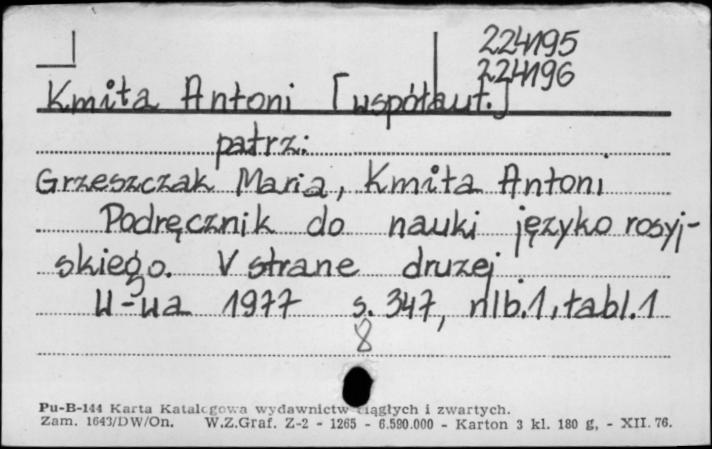 224195
224196
Kmita Antoni [współaut.]
patrz:
Grzeszczak Maria, Kmita Antoni
Podręcznik do nauki języko rosyj-
skiego. V strane druzej
W-wa 1977 s. 347, nlb. 1, tabl. 1
8
Pu-B-144 Karta Katalogowa wydawnictw ciągłych i zwartych.
Zam. 1643/DW/On. W.Z.Graf. Z-2 - 1265 - 6.590.000 - Karton 3 kl. 180 g, - XII. 76.